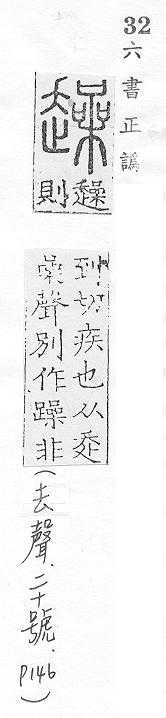 32
六書正譌
趮
趮
則
到切疾也从走
喿聲別作躁非
(去聲．二十號．P146)